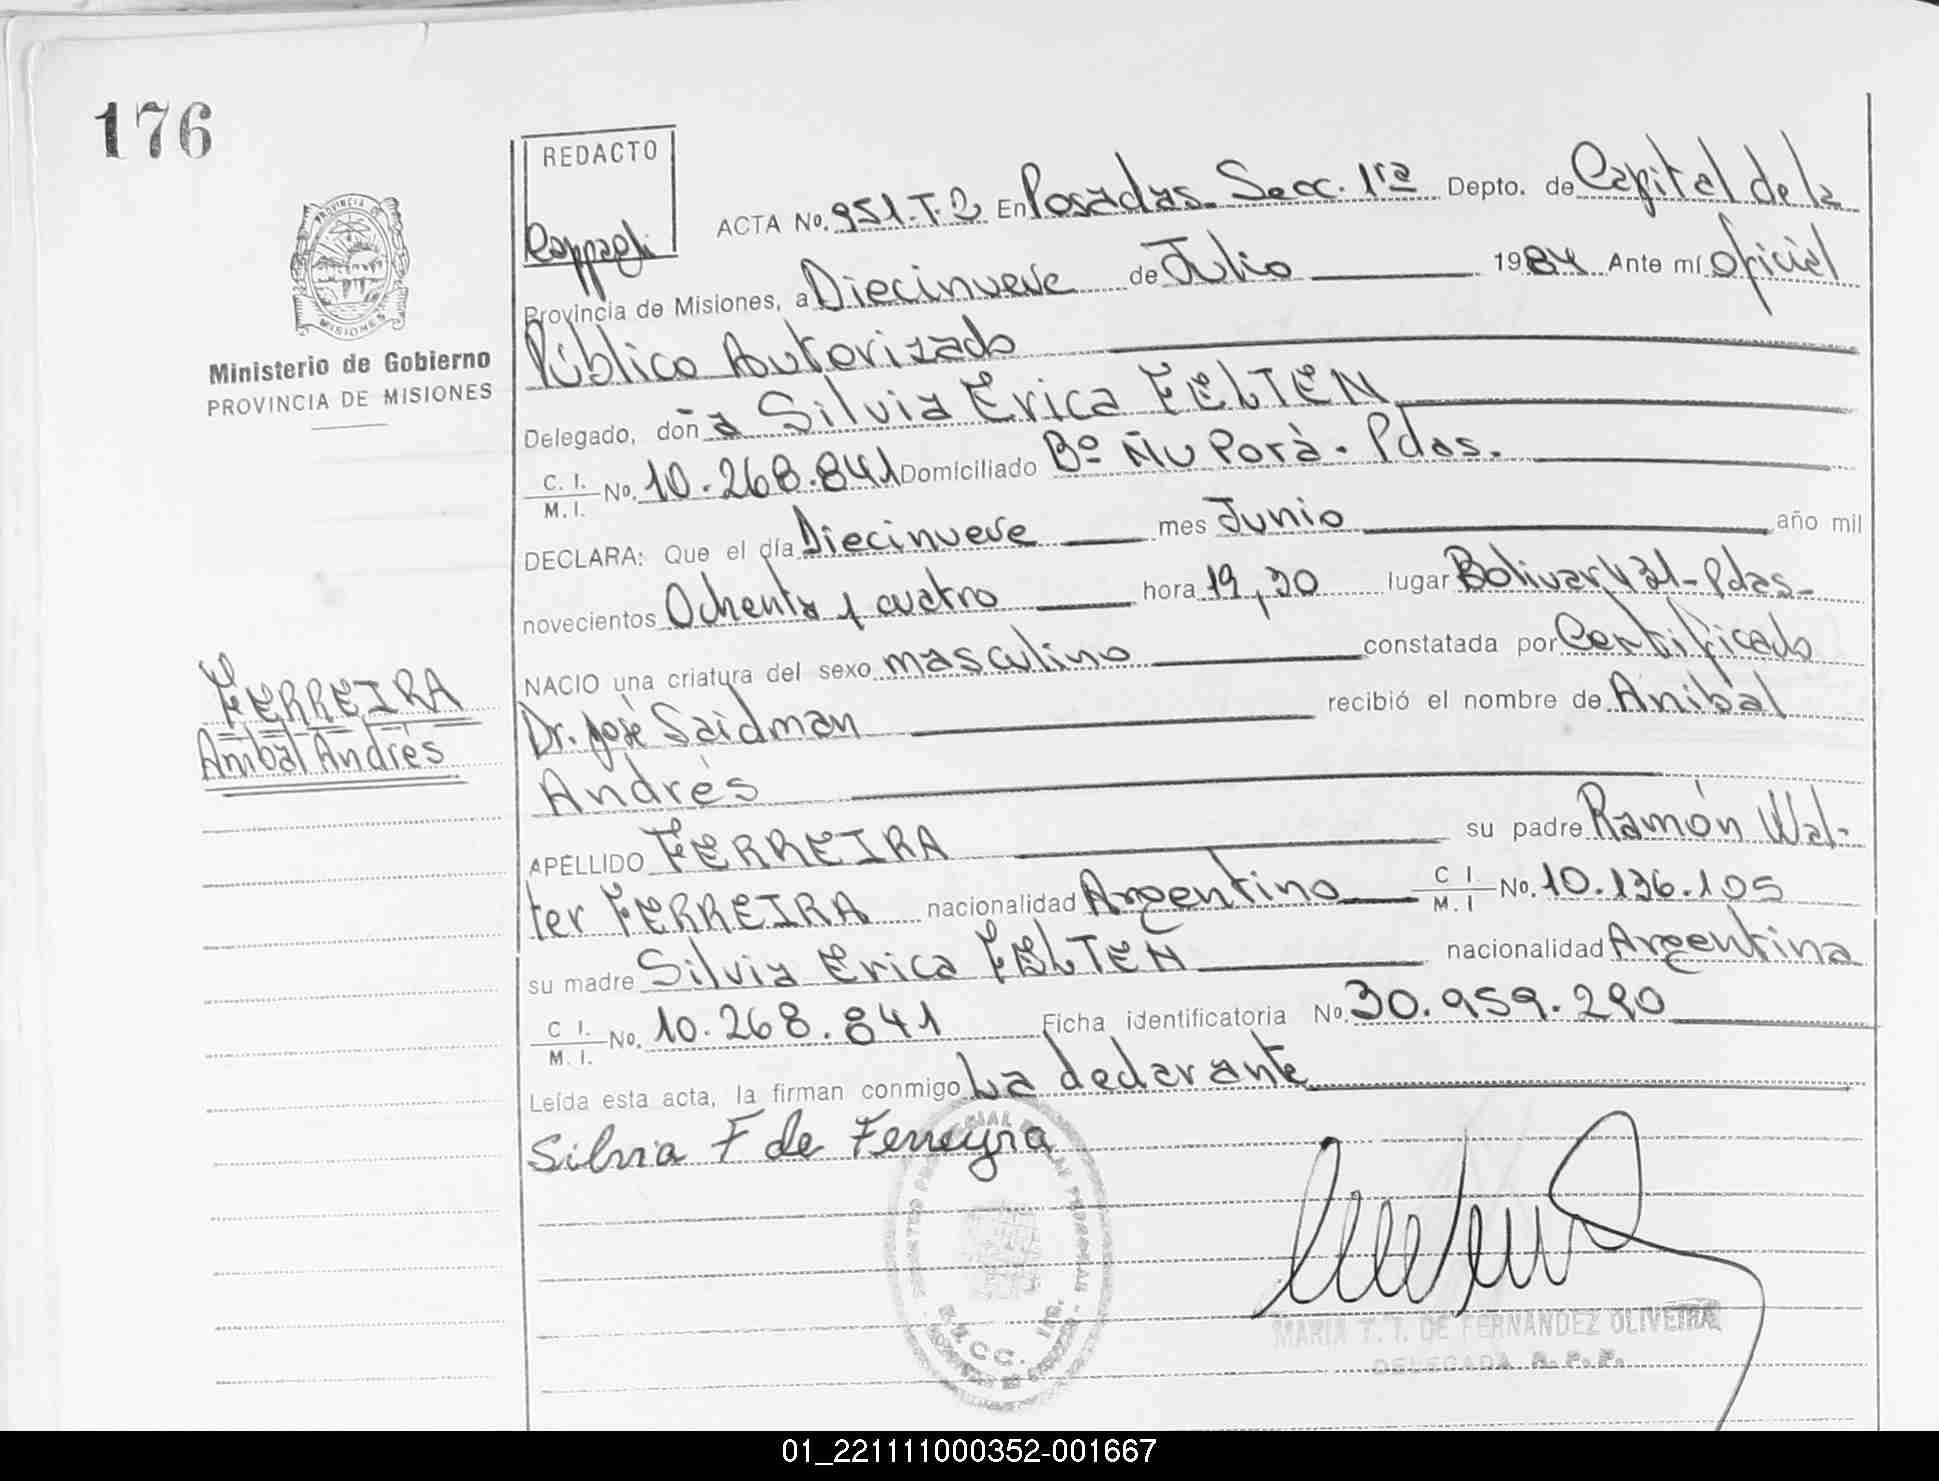 176
REDACTO
Cappagli
PROVINCIA DE
MISIONES
Ministerio de Gobierno
PROVINCIA DE MISIONES
ACTA No. 951.T.2 En Posadas. Secc. 1ra Depto. de Capital de la
Provincia de Misiones, a Diecinueve de Julio 1984 Ante mí Oficial
Público Autorizado
Delegado, don a Silvia Erica FELTEN
C. I. M. I. No. 10.268.841 Domiciliado Bº Ñu Porà - Pdas.
DECLARA: Que el día Diecinueve mes Junio año mil
novecientos Ochenta y cuatro hora 19,30 lugar Bolivar 431-Pdas-
NACIO una criatura del sexo masculino constatada por Certificado
Dr. José Saidman recibió el nombre de Anibal
Andrés
APELLIDO FERREIRA su padre Ramón Wal-
ter FERREIRA nacionalidad Argentino C I. M. I No. 10.136.105
su madre Silvia Erica FELTEN nacionalidad Argentina
C I. M. I. No. 10.268.841 Ficha identificatoria No. 30.959.290
Leída esta acta, la firman conmigo La declarante
Silvia F de Ferreyra
FERREIRA
Anibal Andrés
MARIA T. T. DE FERNANDEZ OLIVEIRA
DELEGADA R. P. P.
01_221111000352-001667